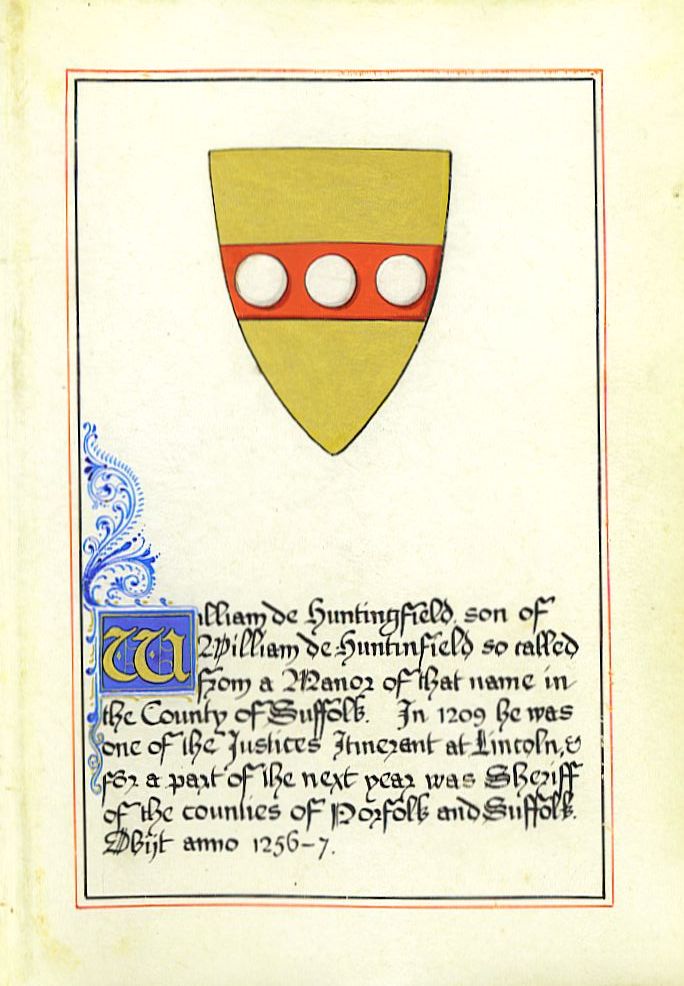 William de Huntingfield, son of
William de Huntinfield so called
from a Manor of that name in
the County of Suffolk. In 1209 he was
one of the Justices Itinerant at Lincoln, &
for a part of the next year was Sheriff
of the counties of Norfolk and Suffolk.
Obijt anno 1256-7.